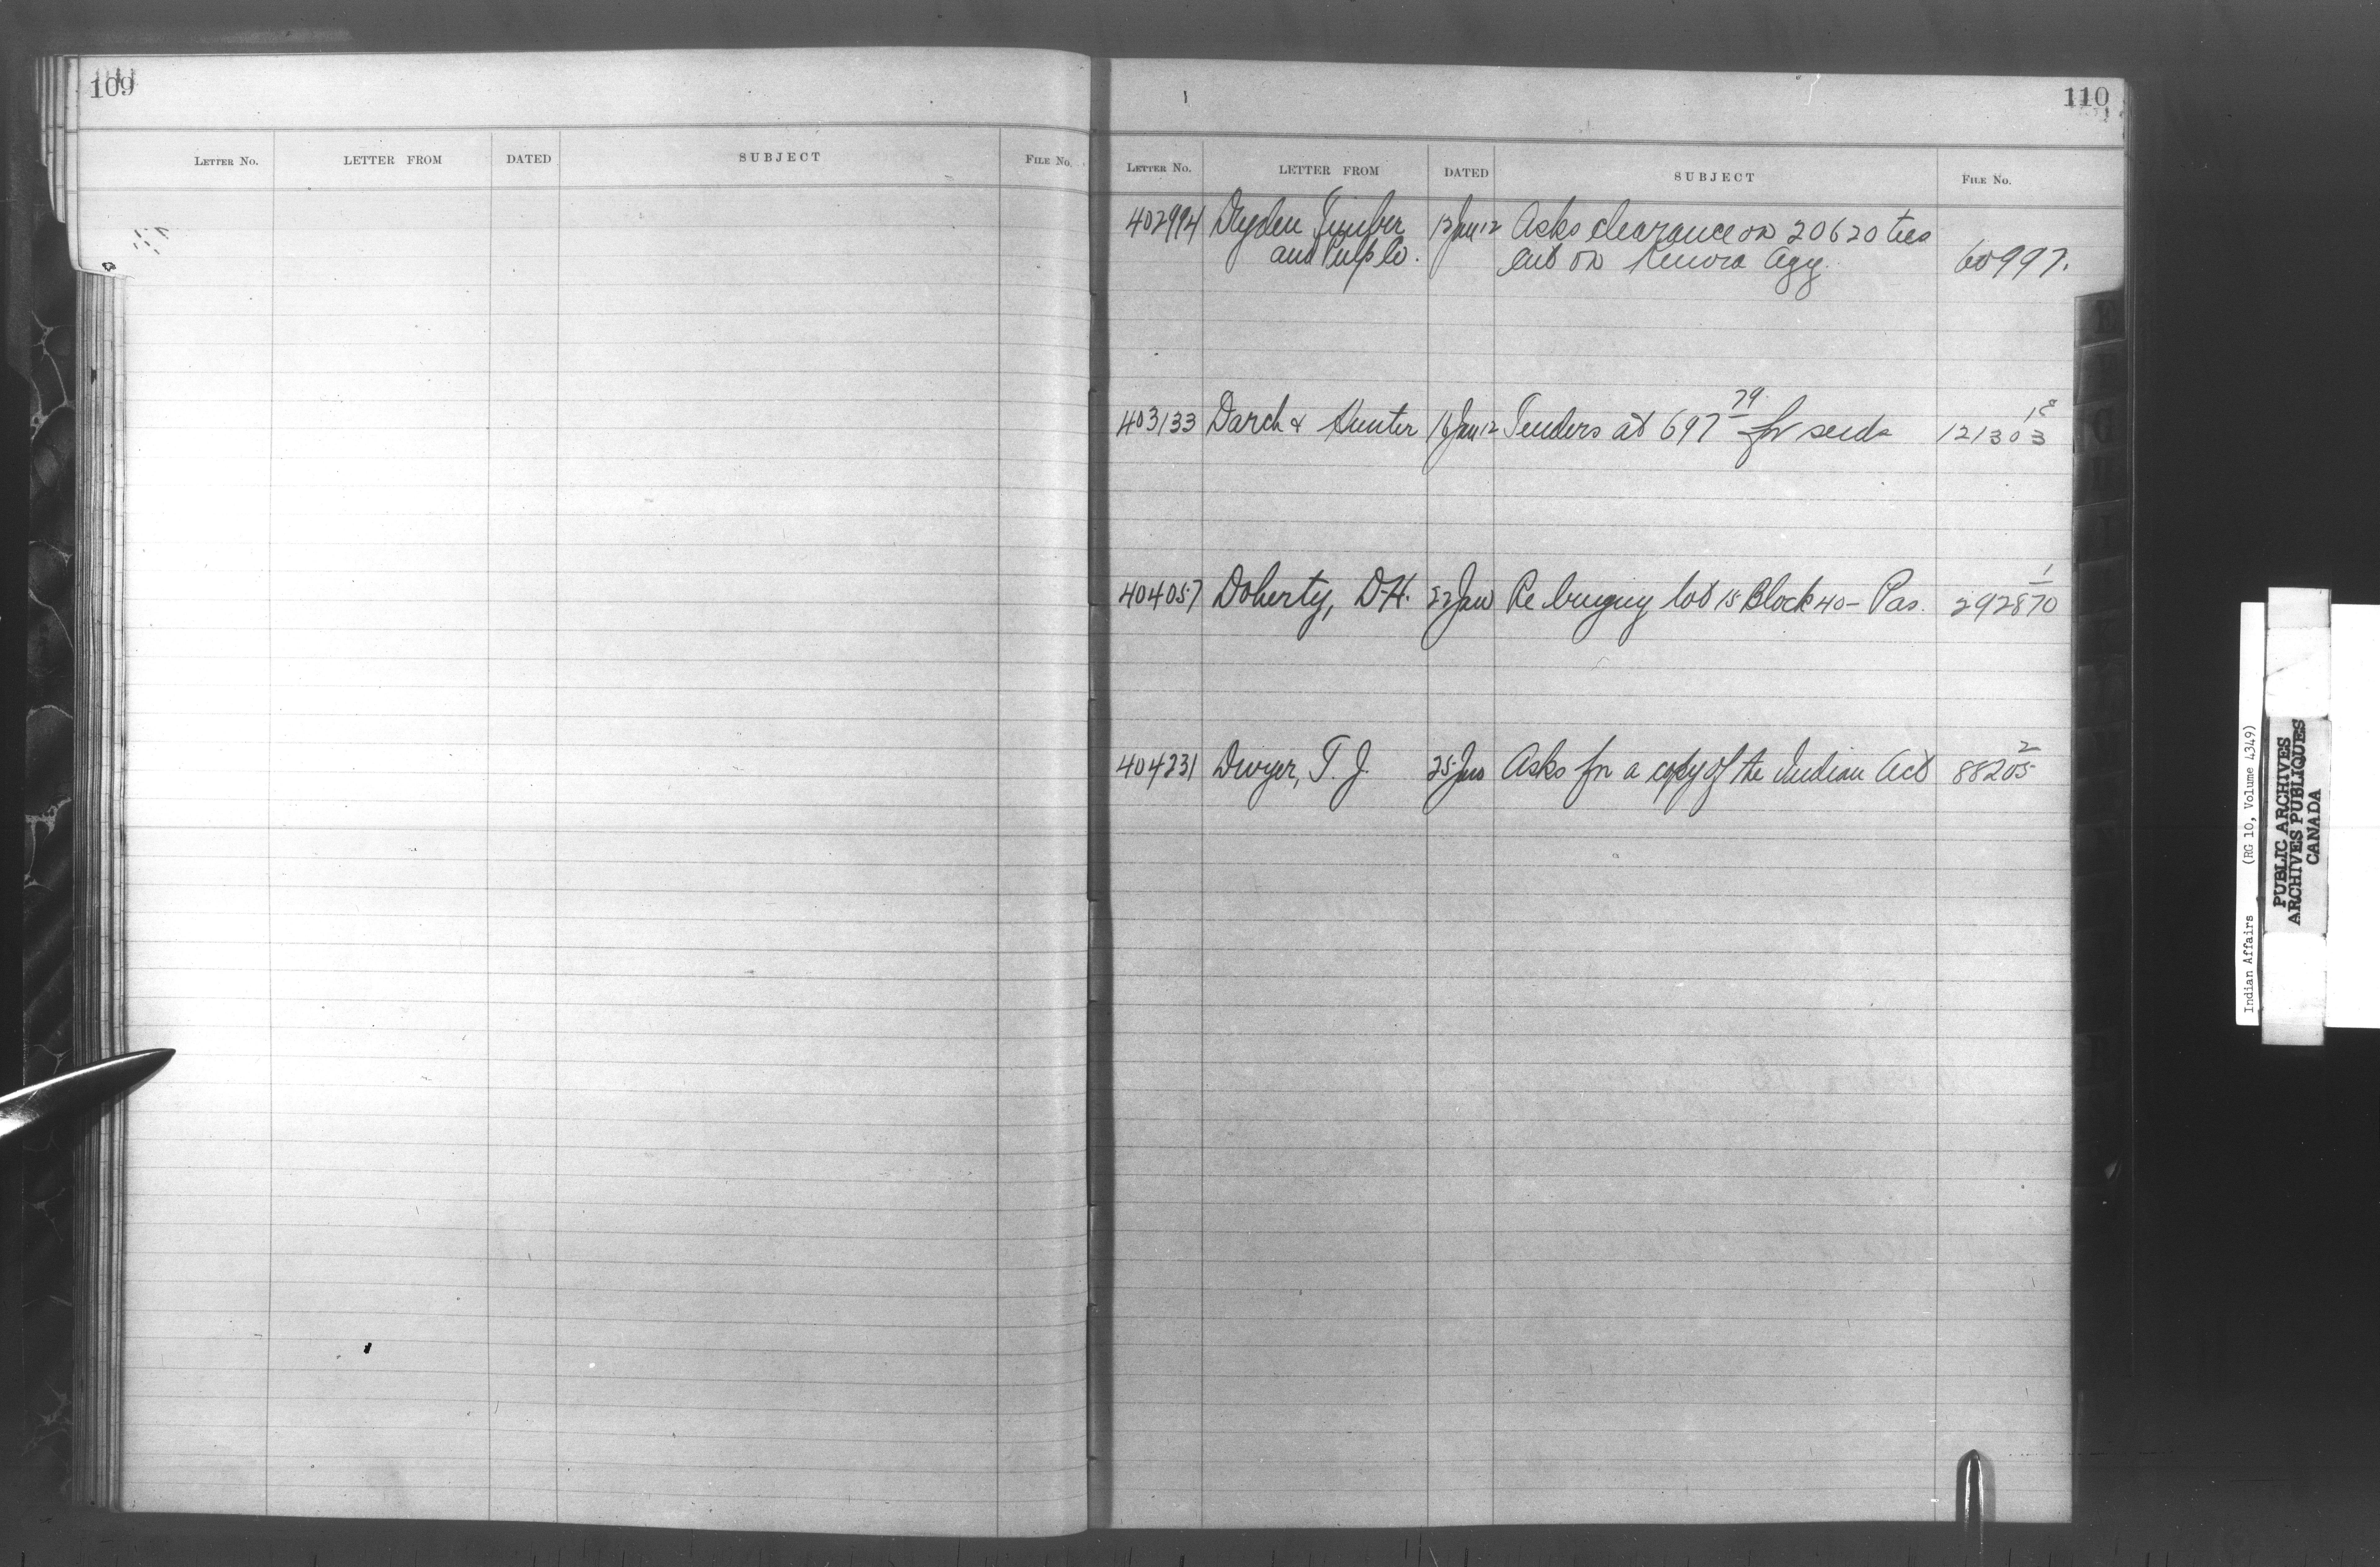 109
LETTER NO. LETTER FROM DATED SUBJECT FILE NO.
110
LETTER NO. LETTER FROM DATED SUBJECT FILE NO.
402994 Dryden Timber 12 Jan 12 Asks clearance on 20620 ties
and Pulp Co. cut on Kenora Agy. 60997.
403133 Darch & Hunter 16 Jan 12 Tenders at 697 79 for seeds 121303 1c
404057 Doherty, D.H. 22 Jan Re buying lot 15 Block 40 - Pas. 292870 1
404231 Dwyer, T. J. 25 Jan Asks for a copy of the Indian Act 88205 2
E
G
H
I
K
Indian Affairs (RG 10, Volume 4349)
PUBLIC ARCHIVES
ARCHIVES PUBLIQUES
CANADA